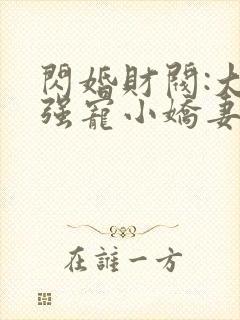 閃婚財閥:大
强寵小嬌妻
在誰一方